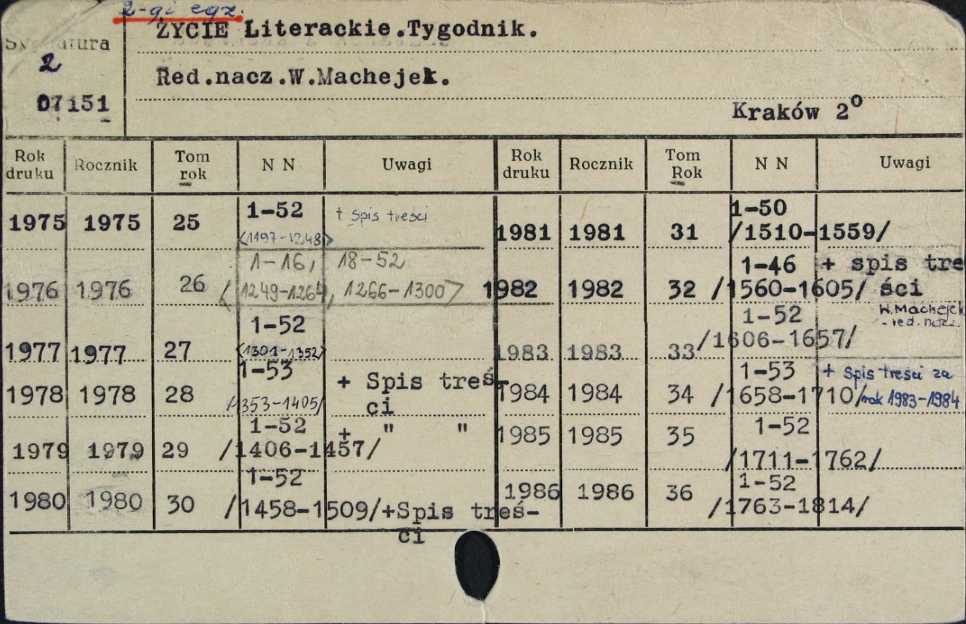 2-gi egz.
Sygnatura
2
07151
ŻYCIE Literackie.Tygodnik.
Red.nacz.W.Machejek.
Kraków 2°
Rok druku Rocznik Tom rok N N Uwagi Rok druku Rocznik Tom Rok N N Uwagi
1975 1975 25 1-52 + Spis treści
<1197-1248>
1976 1976 26 1-16, 18-52
<1249-1264, 1266-1300>
1977 1977 27 1-52
<1301-1352>
1978 1978 28 1-53 + Spis treś-
/1353-1405/ ci
1979 1979 29 1-52 + " "
/1406-1457/
1980 1980 30 1-52
/1458-1509/+Spis treś-
ci
1981 1981 31 1-50
/1510-1559/
1982 1982 32 1-46 + spis tre
/1560-1605/ ści
1983 1983 33 1-52 W.Machejek
/1606-1657/ - red. nacz.
1984 1984 34 1-53 + Spis treści za
/1658-1710/ rok 1983-1984
1985 1985 35 1-52
/1711-1762/
1986 1986 36 1-52
/1763-1814/